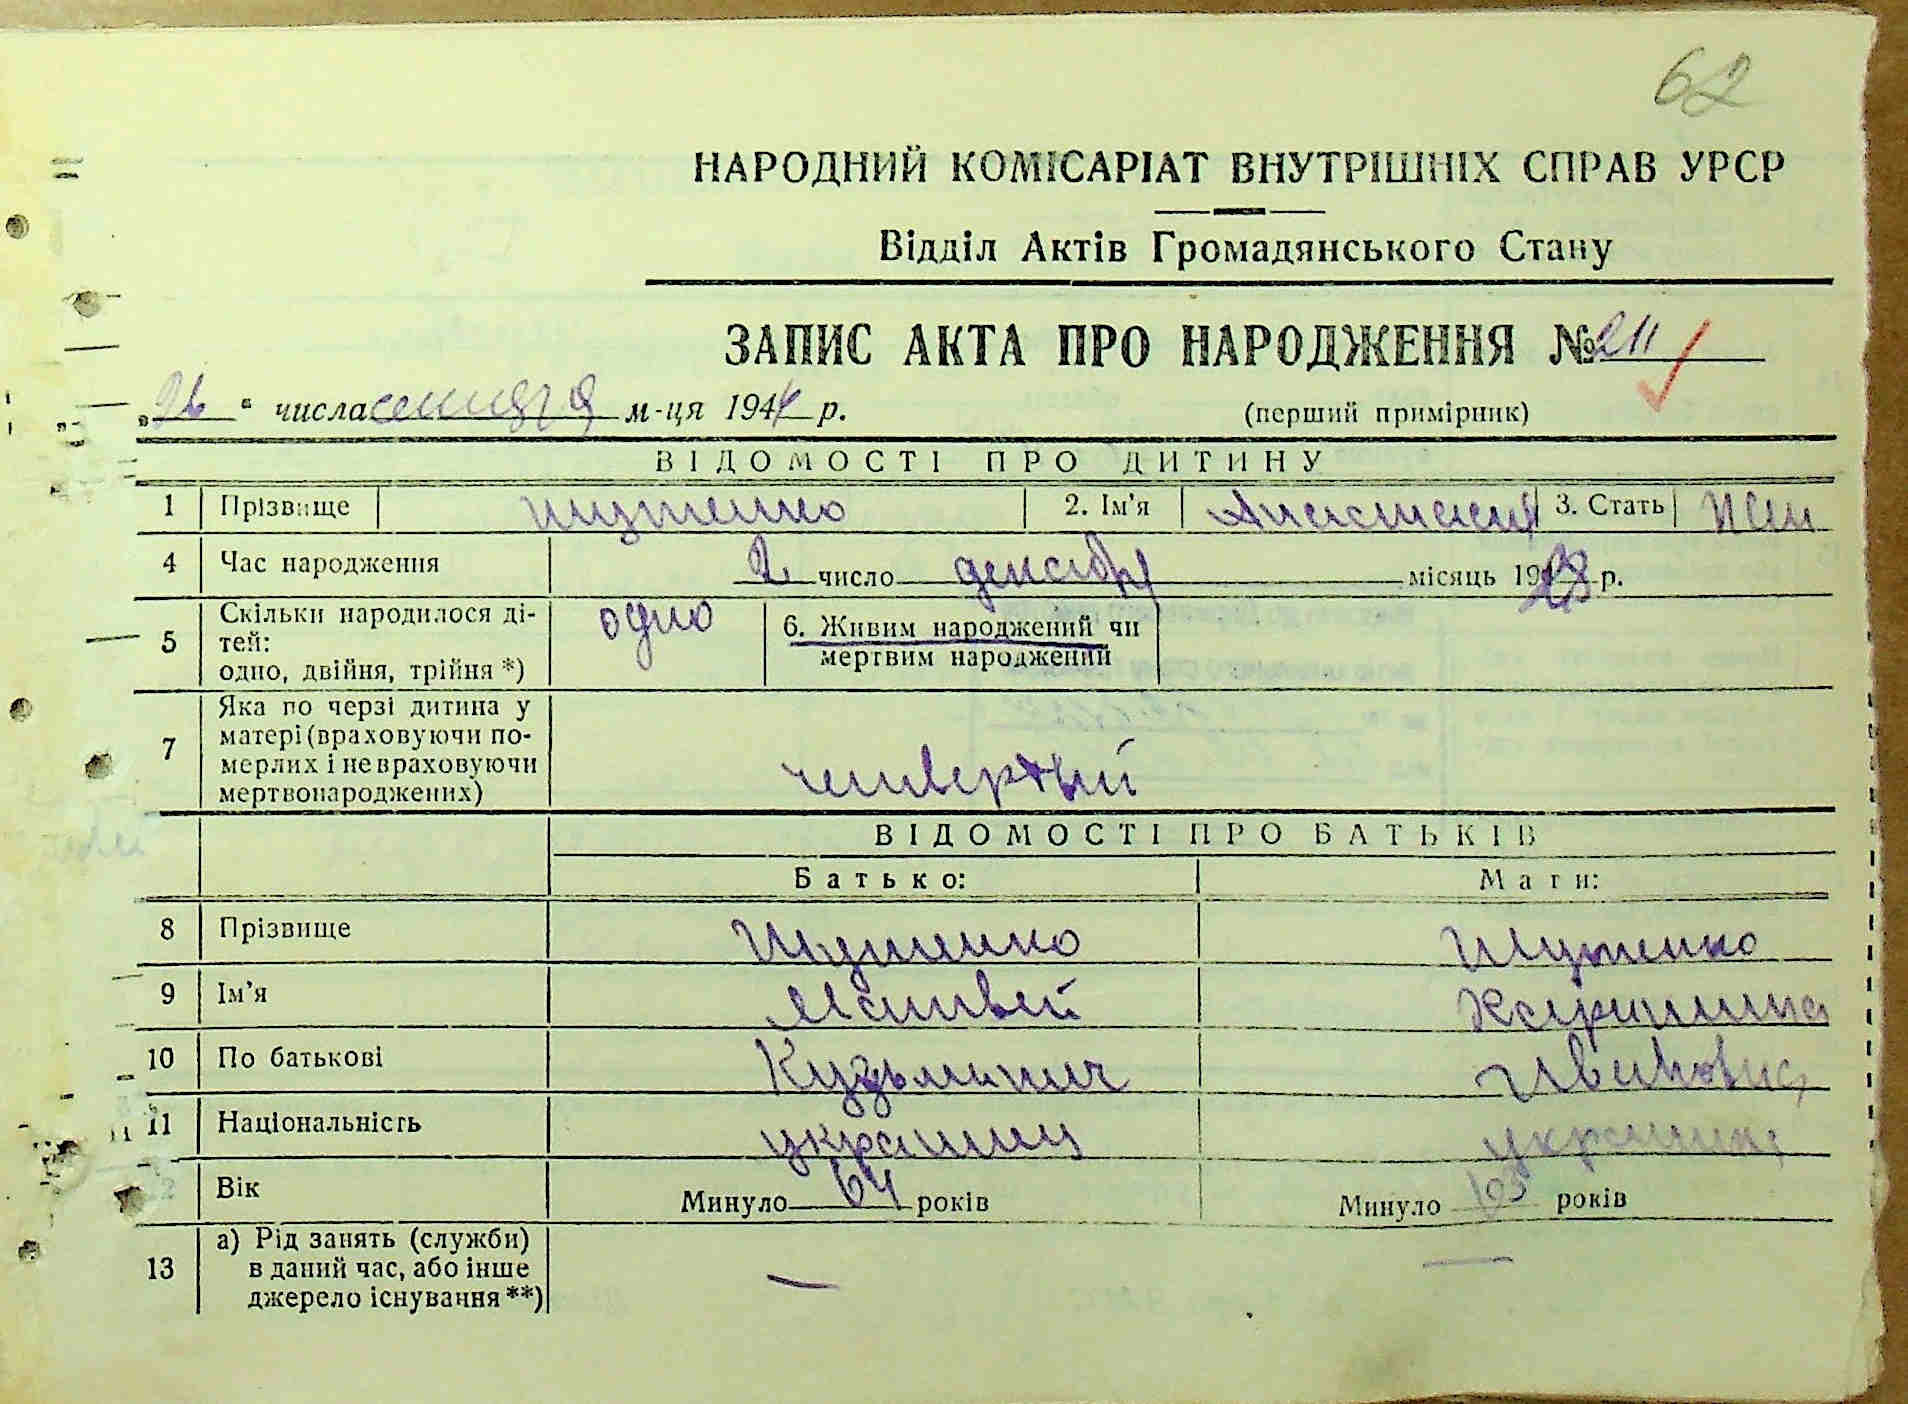 62
НАРОДНИЙ КОМІСАРІАТ ВНУТРІШНІХ СПРАВ УРСР
Відділ Актів Громадянського Стану
ЗАПИС АКТА ПРО НАРОДЖЕННЯ № 211
„26“ числа сентября м-ця 1944 р. (перший примірник)
ВІДОМОСТІ ПРО ДИТИНУ
1 Прізвище Шутенко 2. Ім'я Анастасия 3. Стать жен
4 Час народження 2 число декабря місяць 1923 р.
5 Скільки народилося дітей: одно, двійня, трійня *) одно 6. Живим народжений чи мертвим народжений
7 Яка по черзі дитина у матері (враховуючи померлих і не враховуючи мертвонароджених) четвертый
ВІДОМОСТІ ПРО БАТЬКІВ
Батько: Мати:
8 Прізвище Шутенко Шутенко
9 Ім'я Матвей
10 По батькові Кузьмич Ивановна
11 Національність украинец украинка
12 Вік Минуло 64 років Минуло років
13 а) Рід занять (служби) в даний час, або інше джерело існування **) — —